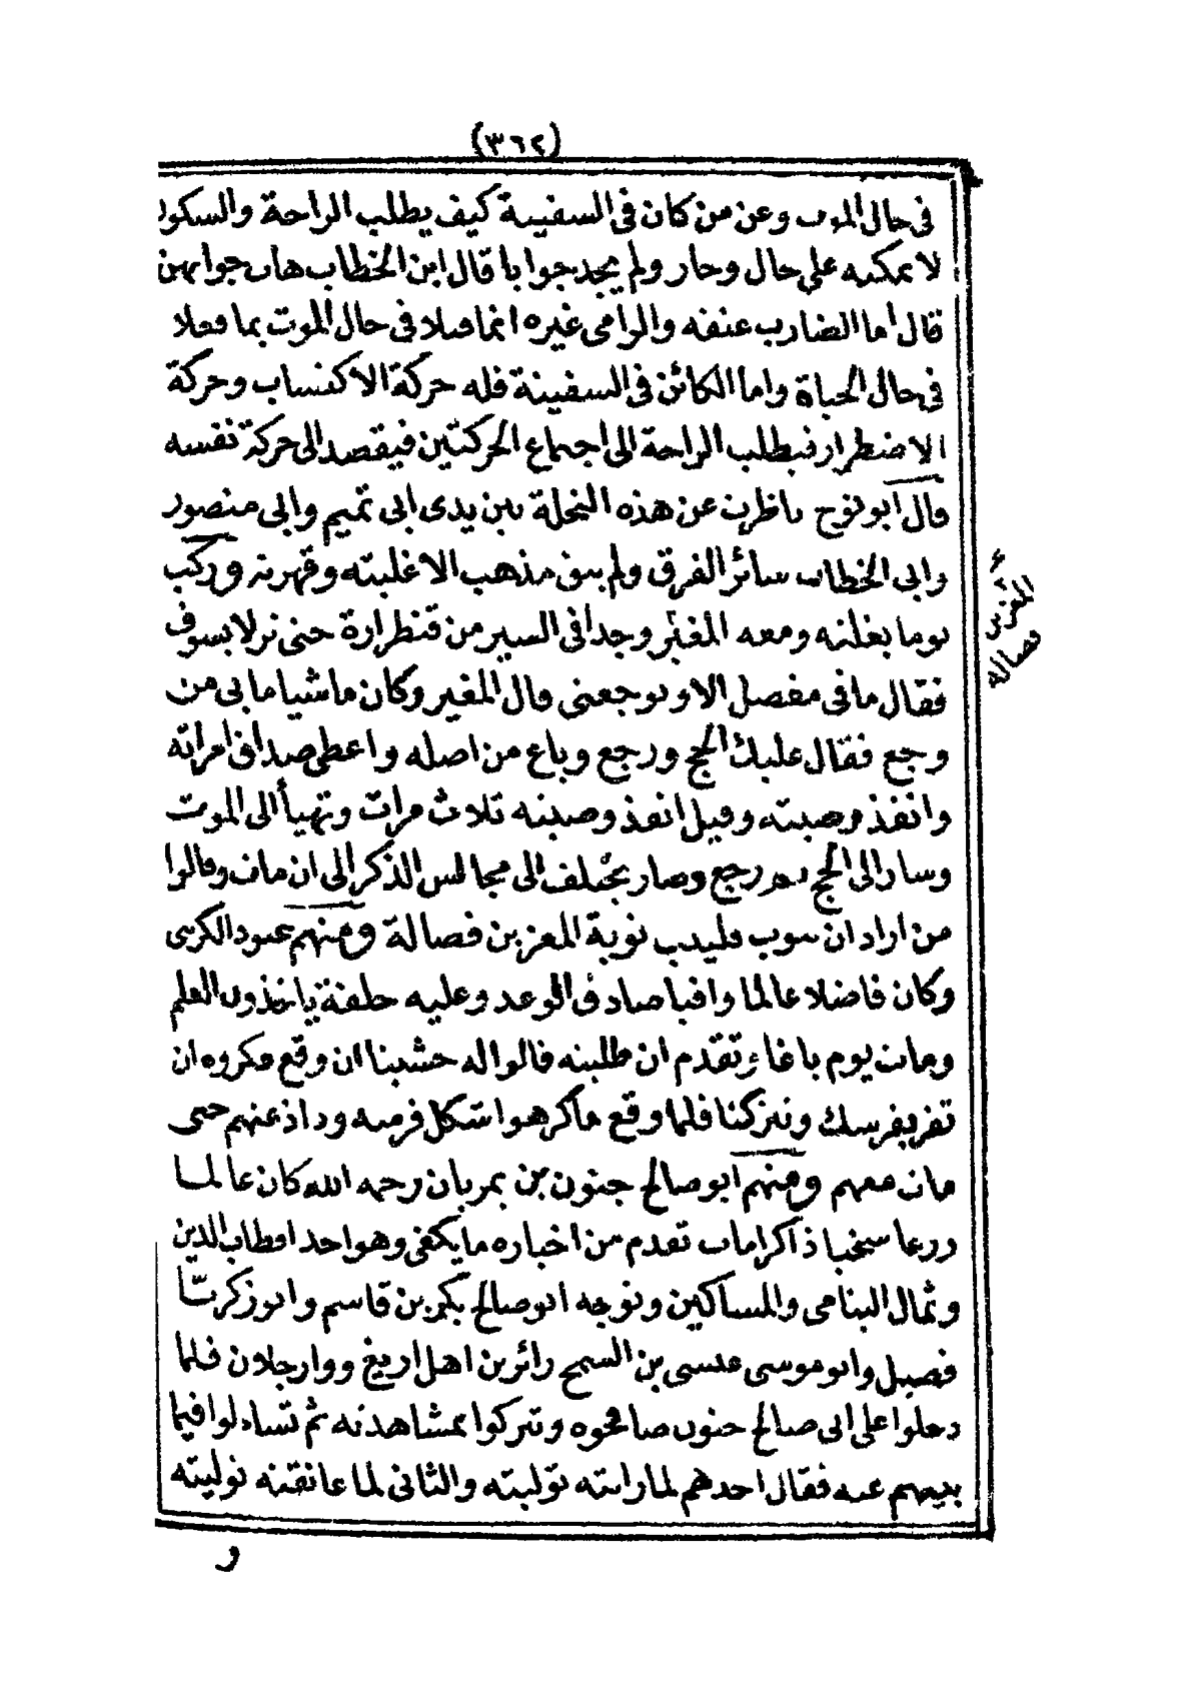 (٣٦٢)
في حال الموت وعن من كان في السفينة كيف يطلب الراحة والسكون
لا يمكنه على حال وحار ولم يجد جوابا قال ابن الخطاب هات جوابهن
قال اما الضارب عنقه والرامى غيره انما فعلا في حال الموت بما فعلا
في حال الحياة واما الكائن في السفينة فله حركة الاكتساب وحركة
الاضطرار فيطلب الراحة الى اجتماع الحركتين فيقصد الى حركة نفسه
قال ابو نوح ناظرت عن هذه النحلة بين يدى ابى تميم وابى منصور
وابى الخطاب سائر الفرق ولم يبق مذهب الا غلبته وقهرته وركب
يوما بغلته ومعه المغير وجدا فى السير من قنطرارة حتى نزلا بسوف
فقال ما في مفصل الا ويوجعنى قال المغير وكان ماشيا ما بى من
وجع فقال عليك الحج ورجع وباع من اصله واعطى صداق امراته
وانفذ وصيته وقيل انفذ وصيته ثلاث مرات وتهيأ الى الموت
وسار الى الحج ثم رجع وصار يختلف الى مجالس الذكر الى ان مات وقالوا
من اراد ان يتوب فليتب توبة المعز بن فصالة ومنهم عبود الكزبى
وكان فاضلا عالما وافيا صادق الوعد وعليه حلقة ياخذون العلم
ومات يوم باغاء تقدم ان طلبته قالوا له خشينا ان وقع مكروه ان
تفر بفرسك وتتركنا فلما وقع ما كرهوا شكل فرسه وداذ عنهم حتى
مات معهم ومنهم ابو صالح جنون بن يمريان رحمه الله كان عالما
ورعا سخيا ذا كرامات تقدم من اخباره ما يكفى وهو احد اقطاب الدين
وثمال اليتامى والمساكين وتوجه ابو صالح بكر بن قاسم وابو زكريا
فصيل وابو موسى عيسى بن السمح زائرين اهل اريغ ووارجلان فلما
دخلوا على ابى صالح جنون صافحوه وتبركوا بمشاهدته ثم تساءلوا فيما
بينهم عنه فقال احدهم لما رايته توليته والثانى لما عانقته توليته
و
المعز بن
فصالة